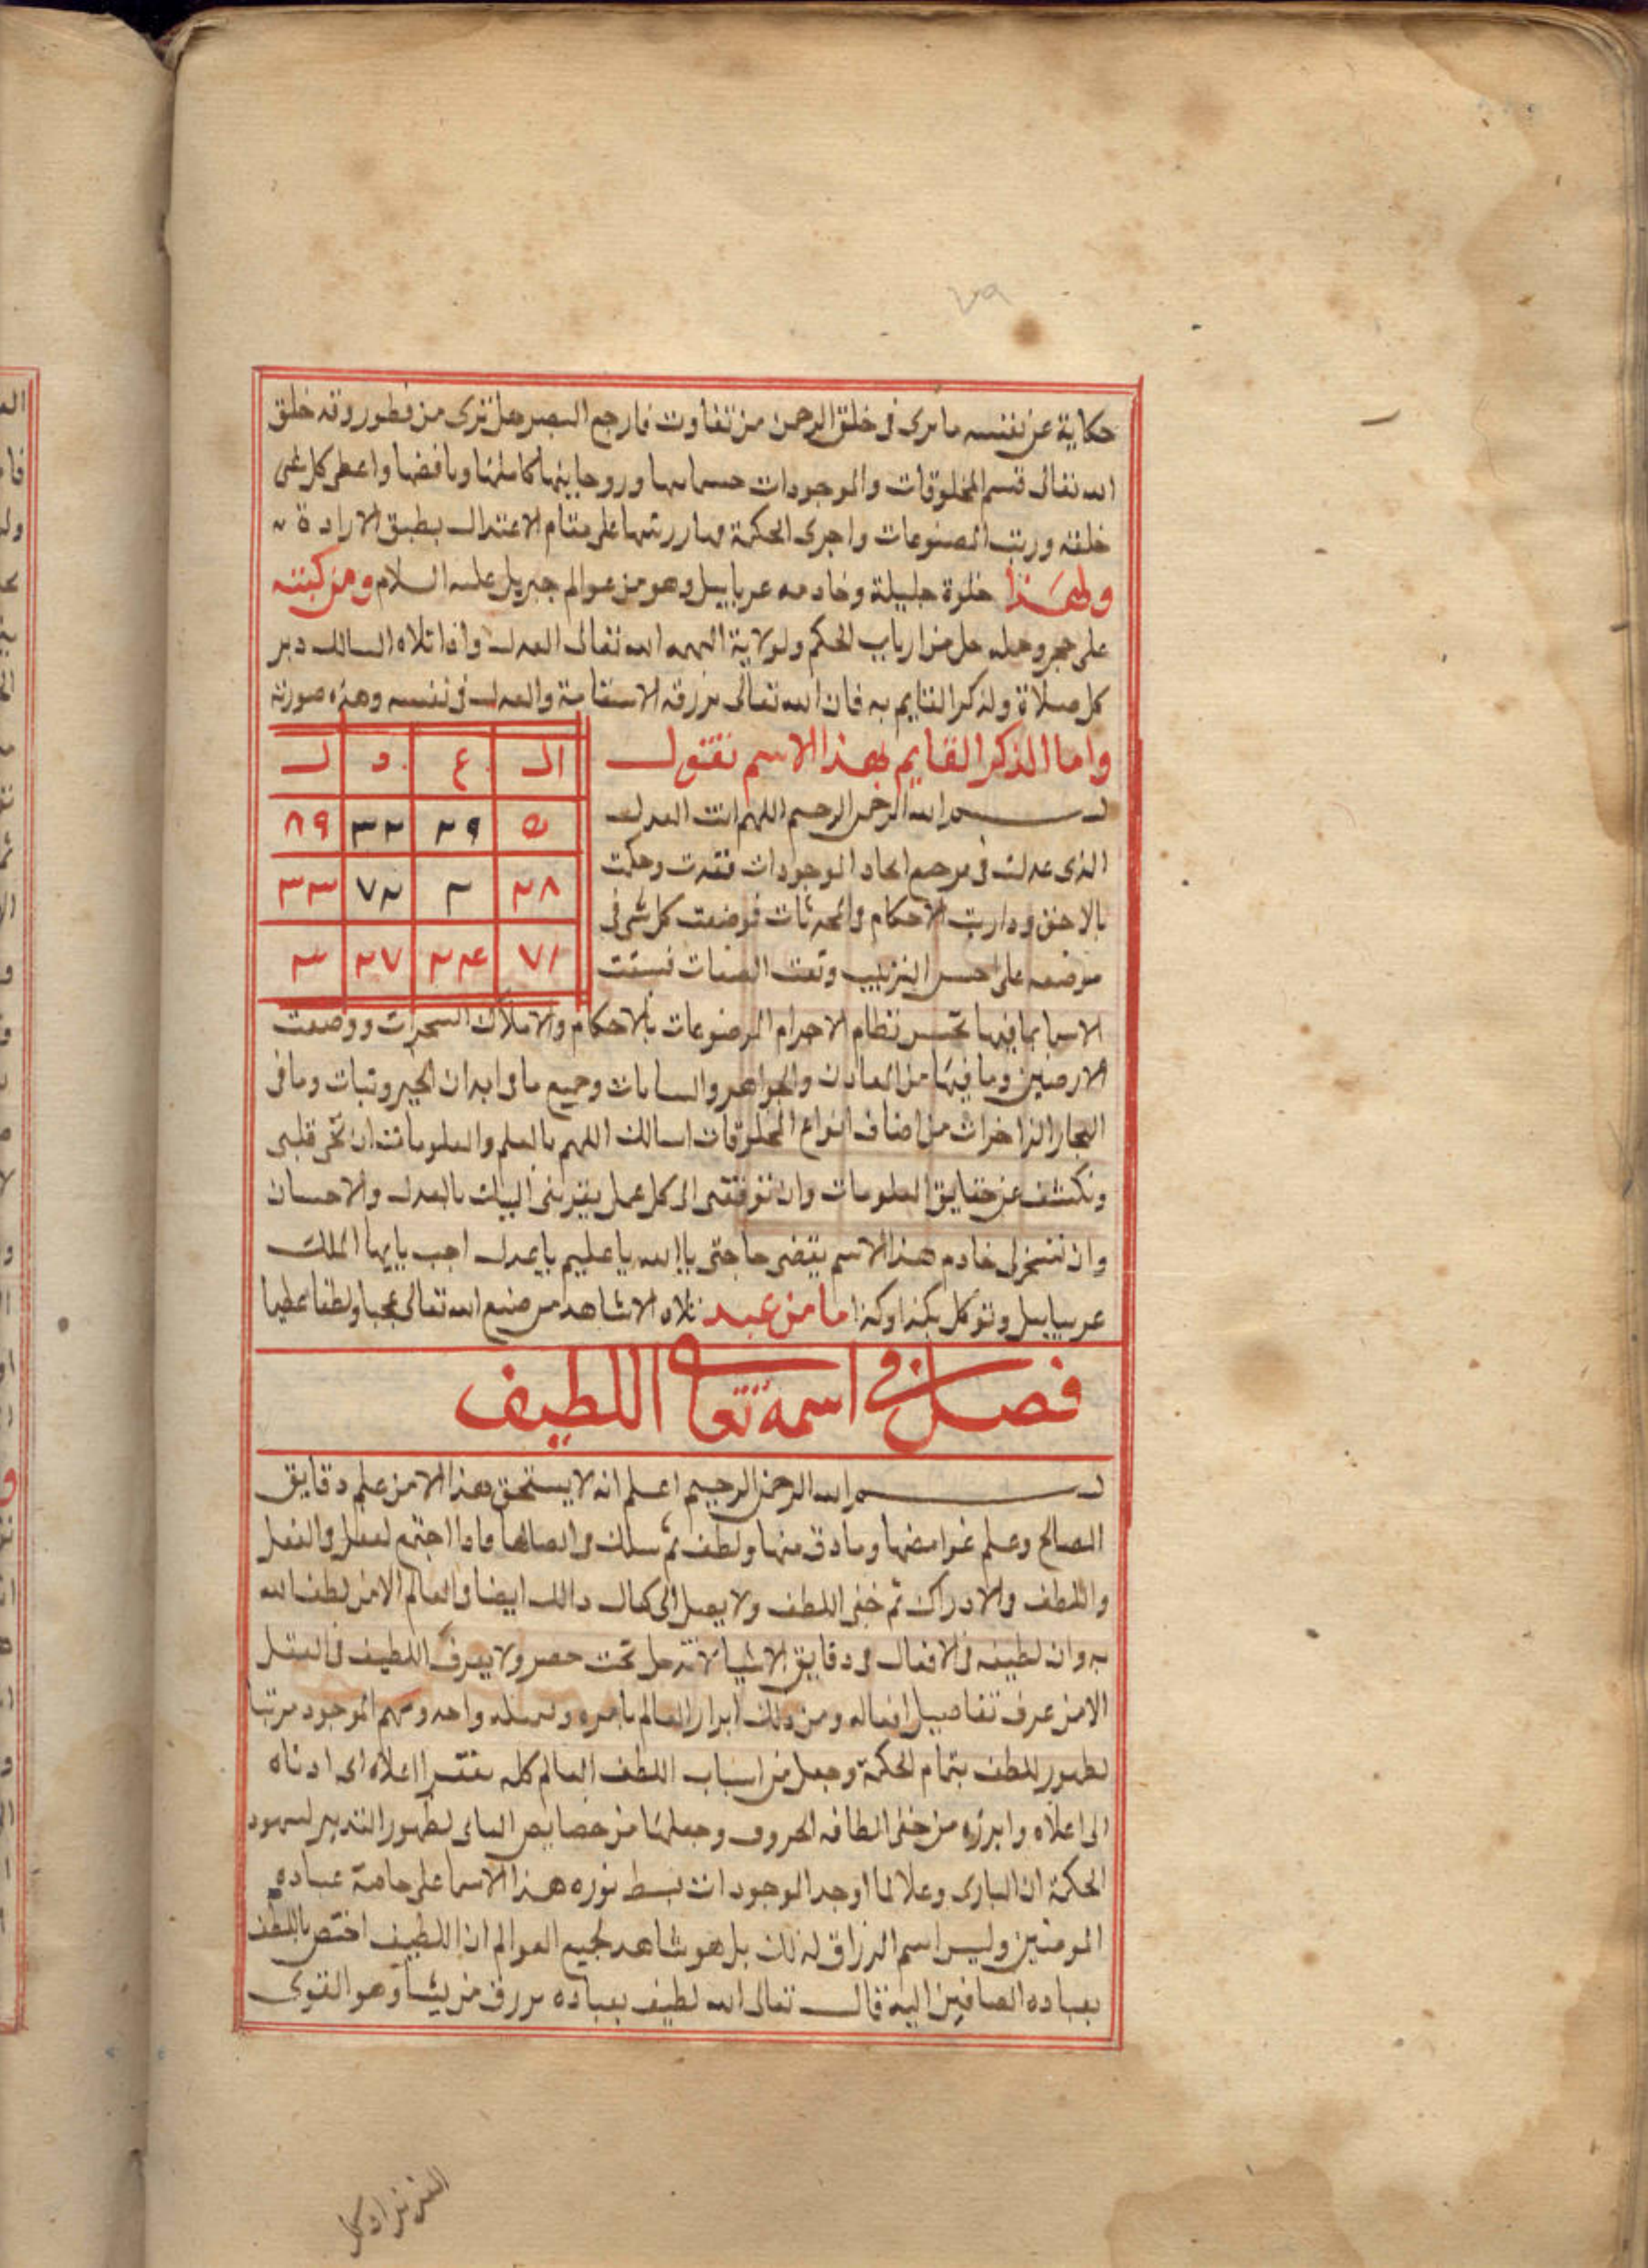 ٧٩
حكاية عن نفسه ما ترى فى خلق الرحمن من تفاوت فارجع البصر هل ترى من فطور وقد خلق
الله تعالى قسم المخلوقات والموجودات وروحانيها كاملها وناقصها واعطى كل شى
خلقه ورتب المصنوعات واجرى الحكمة على مقام الاعتدال بطبق الارادة
ولهذا خلوة جليلة وخادمه عريائيل وهو من عوالم جبريل عليه السلام ومن كتبه
على حجر وحمله من ارباب الحكم ولولاية الهمه الله تعالى العدل واذا تلاه السالك دبر
كل صلاة ولذكر القايم به فان الله تعالى يرزقه الاستقامة والعدل فى نفسه وهذه صورته
واما الذكر القايم بهذا الاسم تقول
الـ ع د ل
٥ ٢٩ ٣٢ ٨٩
٢٨ ٢ ٧٢ ٣٣
٧١ ٢٤ ٢٧ ٣
بسم الله الرحمن الرحيم اللهم انت العدل
الذى عدلت فى الموجودات فقدت وحكمت
بالاحكام والمحدثات فوضعت كل شى فى
موضعه على احسن الترتيب الصفات
الاسما بما فيها نظام الاجرام الموضوعات بالاحكام والاملاك ووضعت
الارضين وما فيها من المعادن والجواهر وجميع ما فى ابدان وما فى
البحار الزاخرات من اصناف انواع المخلوقات اسالك اللهم بالعلم والمعلومات ان قلبى
وتكشف عن حقايق المعلومات وان توفقنى الى كل عمل يقربنى اليك بالعدل والاحسان
وان تسخر لى خادم هذا الاسم يقضى حاجتى يا الله يا عليم يا عدل اجب يا ايها الملك
وتوكل بكذا وكذا ما من عبد تلاه الا شاهد من صنع الله تعالى عجبا ولطفا عظيما
فصل فى اسمه تعالى اللطيف
بسم الله الرحمن الرحيم اعلم انه لا يستحق هذا الا من علم دقايق
المصالح وعلم غوامضها وما دق منها ولطف ثم سلك فى ايصالها فاذا اجتمع والفعل
واللطف والادراك ثم خفى اللطف ولا يصل الى كمال ذالك ايضا فى العالم الا من لطف الله
به وان لطيفه فى الافعال فى دقايق الاشيا تحت حصر ولا يعرف اللطيف فى العقل
الا من عرف تفاصيل افعاله ومن ذلك ابراز العالم باسره واحد الموجود مرتبا
لظهور اللطف بتمام الحكمة وجعل من اسباب اللطف العالم كله اعلاه ادناه
الى اعلاه وابرزه من خفى الطافه الحروف وجعلها من خصايص لظهور التدبير
الحكمة ان البارى وعلا لما اوجد الموجودات بسط نوره هذا الاسما على عباده
المومنين وليس اسم الرزاق لذلك بل هو شاهد لجميع العوالم ان اللطيف اختص باللطف
بعباده الصافين اليه قال تعالى الله لطيف بعباده يرزق من يشا وهو القوى